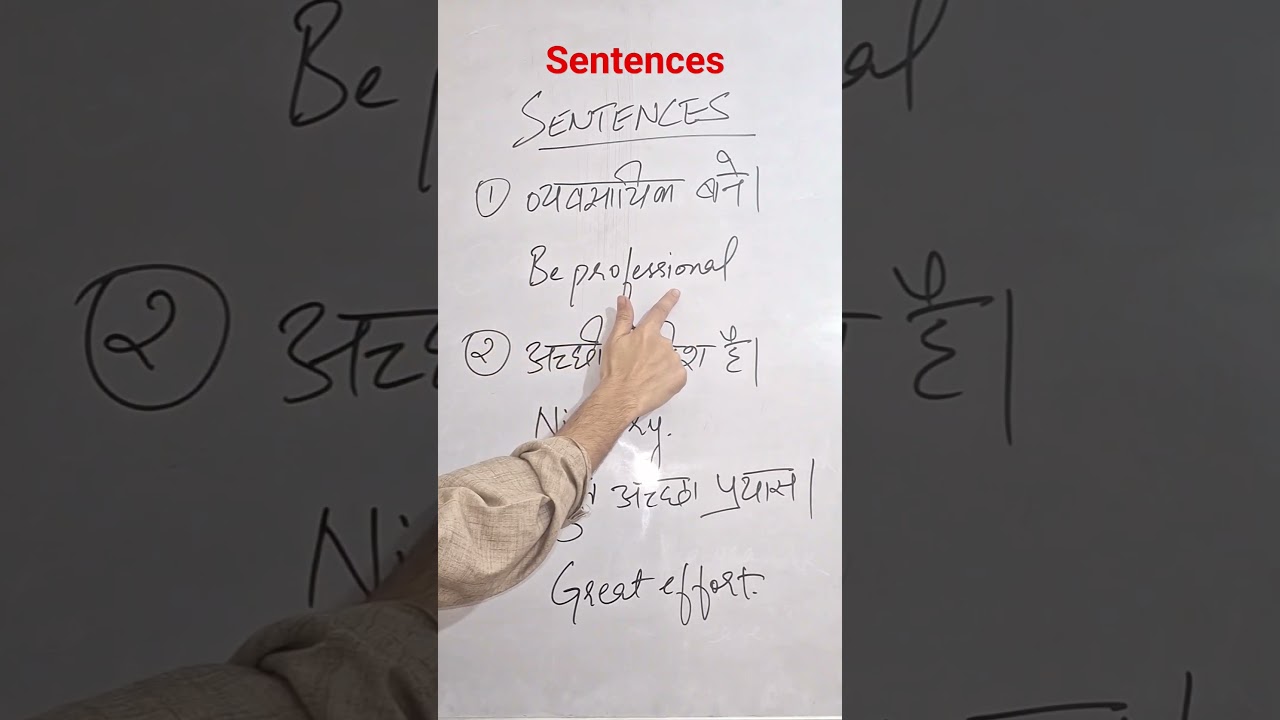 Sentences
SENTENCES
① व्यवसायिक बने।
Be professional
② अच्छी है।
अच्छा प्रयास।
Great effort.